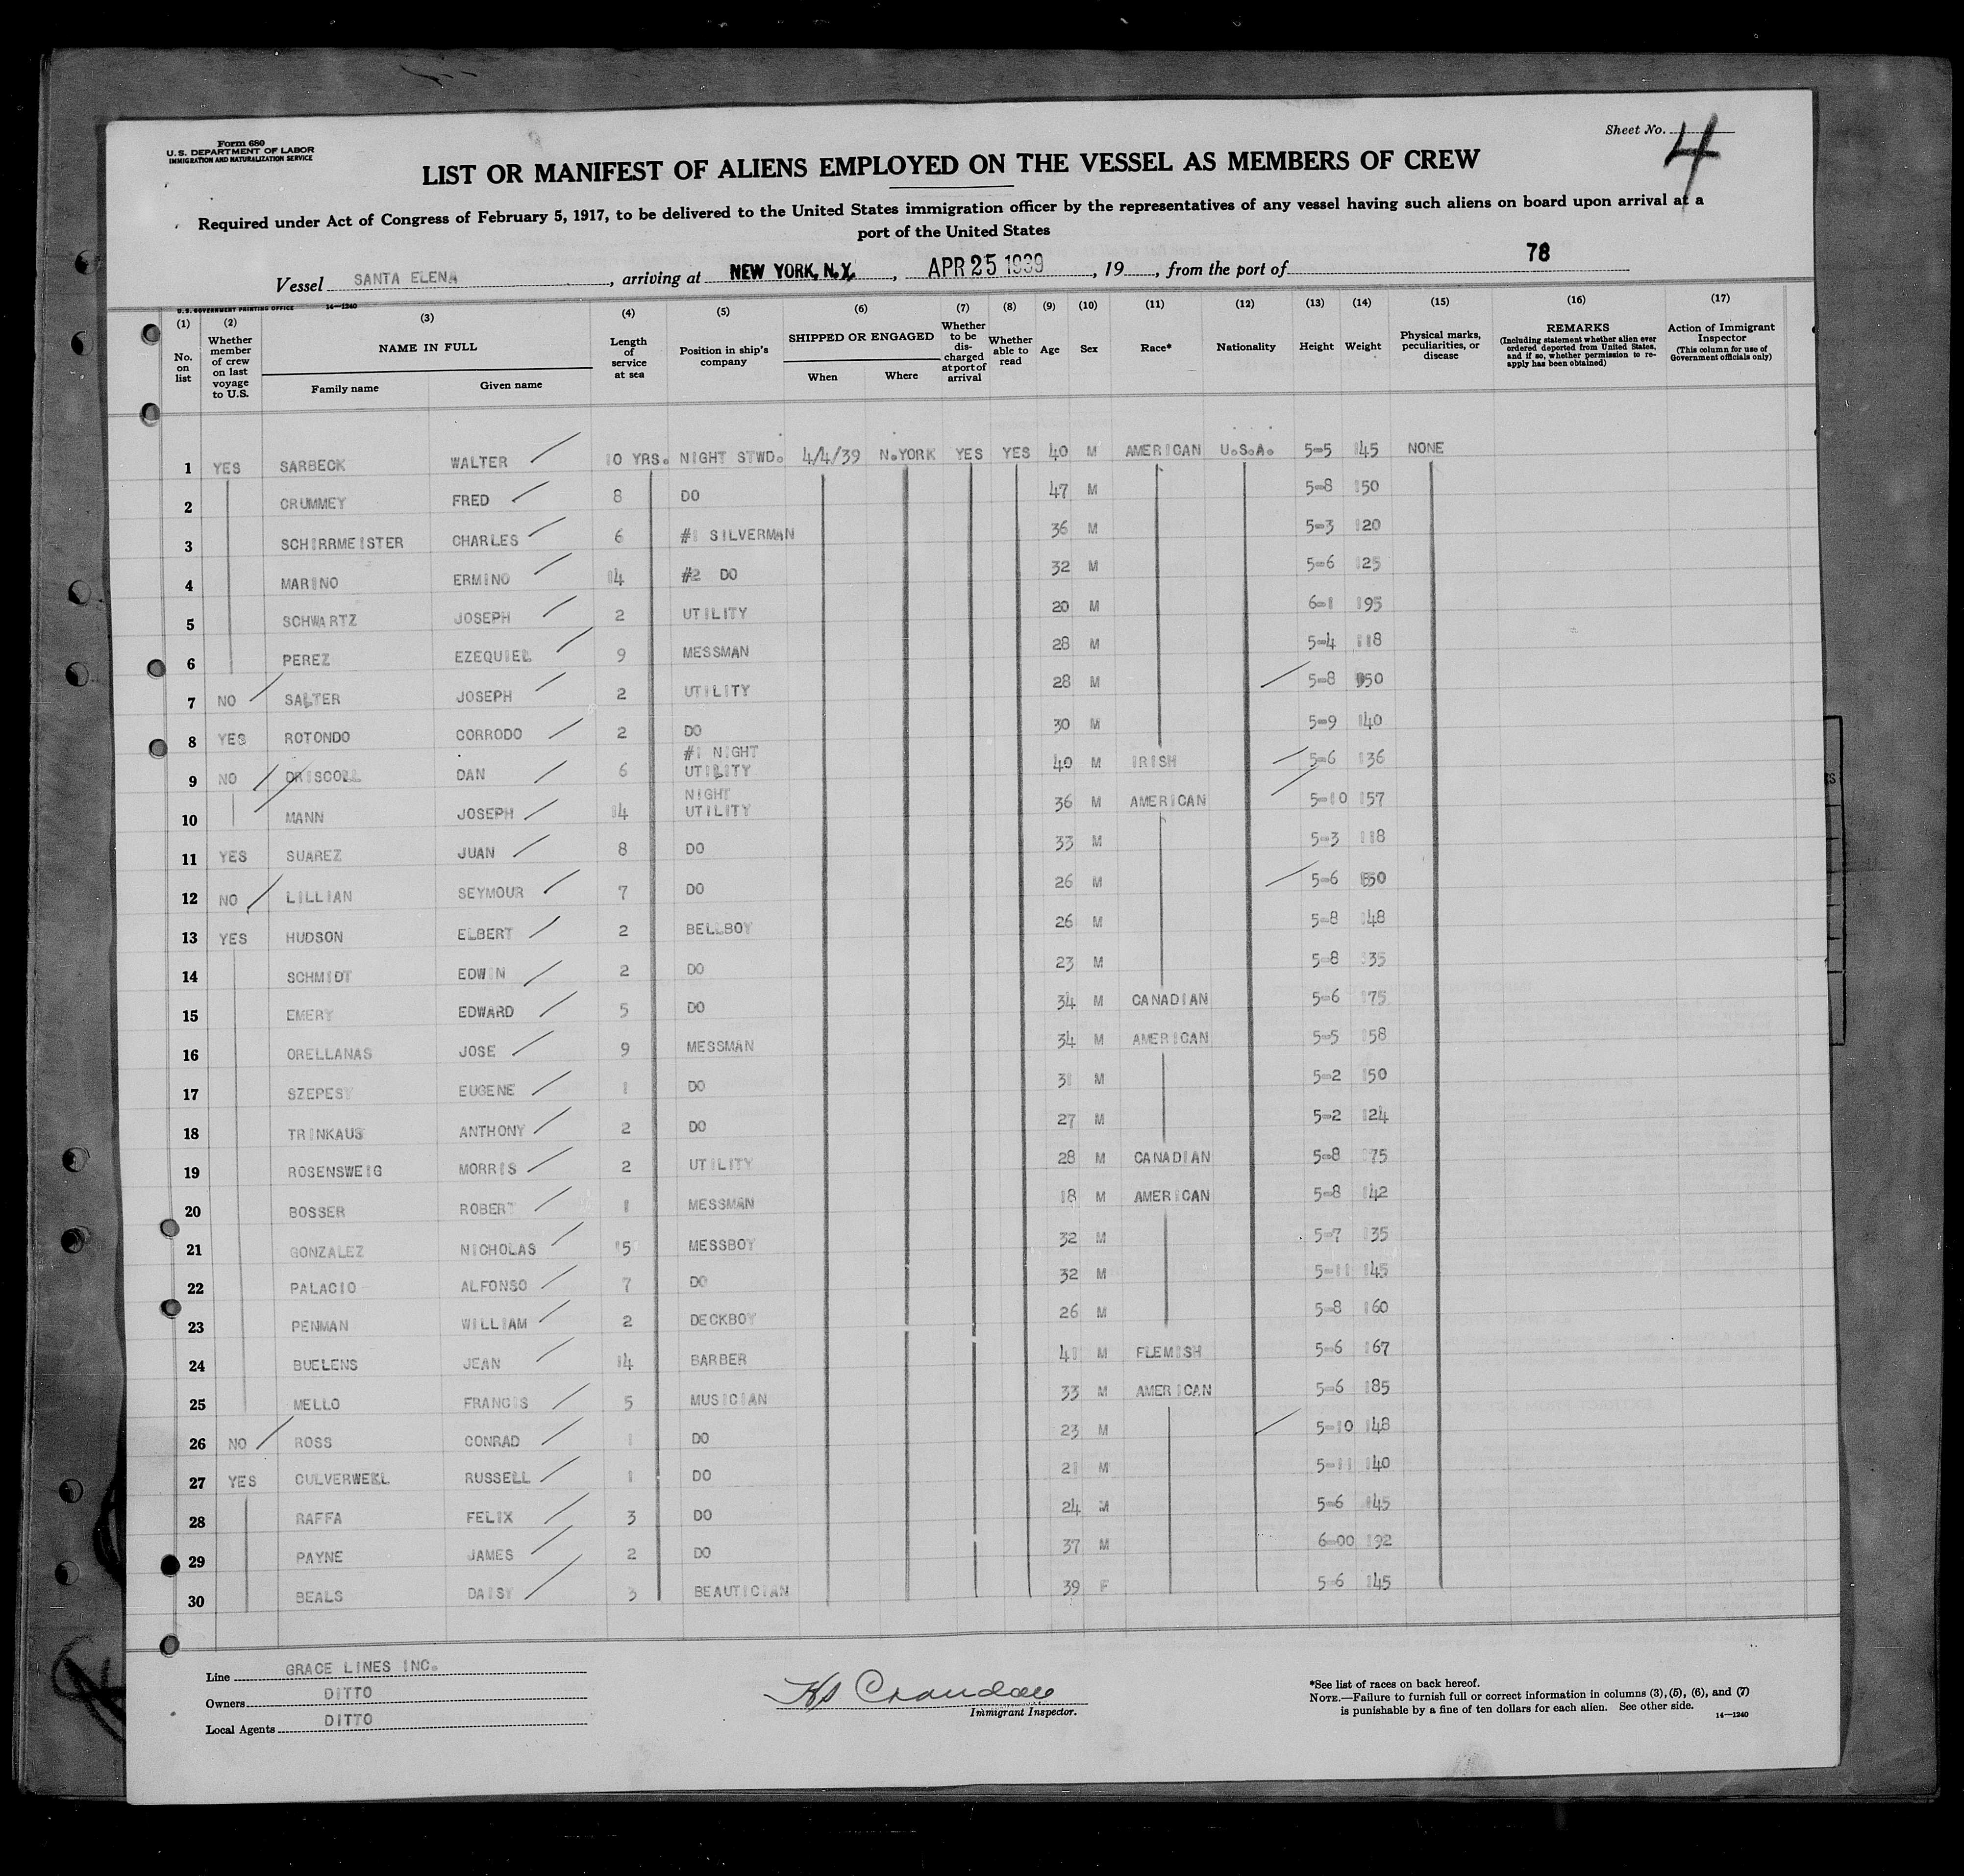 Form 680
U.S. DEPARTMENT OF LABOR
IMMIGRATION AND NATURALIZATION SERVICE
Sheet No. 4
LIST OR MANIFEST OF ALIENS EMPLOYED ON THE VESSEL AS MEMBERS OF CREW
Required under Act of Congress of February 5, 1917, to be delivered to the United States immigration officer by the representatives of any vessel having such aliens on board upon arrival at a
port of the United States
78
Vessel SANTA ELENA, arriving at NEW YORK, N.Y., APR 25 1939, 19, from the port of
U.S. GOVERNMENT PRINTING OFFICE 14—1240
(1) (2) (3) (4) (5) (6) (7) (8) (9) (10) (11) (12) (13) (14) (15) (16) (17)
No. on list
Whether member of crew on last voyage to U.S.
NAME IN FULL
Family name
Given name
Length of service at sea
Position in ship's company
SHIPPED OR ENGAGED
When
Where
Whether to be discharged at port of arrival
Whether able to read
Age
Sex
Race*
Nationality
Height
Weight
Physical marks, peculiarities, or disease
REMARKS
(Including statement whether alien ever ordered deported from United States, and if so, whether permission to reapply has been obtained)
Action of Immigrant Inspector
(This column for use of Government officials only)
1 YES SARBECK WALTER 10 YRS. NIGHT STWD. 4/4/39 N.YORK YES YES 40 M AMERICAN U.S.A. 5-5 145 NONE
2 CRUMMEY FRED 8 DO 47 M 5-8 150
3 SCHIRRMEISTER CHARLES 6 #1 SILVERMAN 36 M 5-3 120
4 MARINO ERMINO 14 #2 DO 32 M 5-6 125
5 SCHWARTZ JOSEPH 2 UTILITY 20 M 6-1 195
6 PEREZ EZEQUIEL 9 MESSMAN 28 M 5-4 118
7 NO SALTER JOSEPH 2 UTILITY 28 M 5-8 150
8 YES ROTONDO CORRODO 2 DO 30 M 5-9 140
9 NO DRISCOLL DAN 6 #1 NIGHT UTILITY 40 M IRISH 5-6 136
10 MANN JOSEPH 14 NIGHT UTILITY 36 M AMERICAN 5-10 157
11 YES SUAREZ JUAN 8 DO 33 M 5-3 118
12 NO LILLIAN SEYMOUR 7 DO 26 M 5-6 150
13 YES HUDSON ELBERT 2 BELLBOY 26 M 5-8 148
14 SCHMIDT EDWIN 2 DO 23 M 5-8 135
15 EMERY EDWARD 5 DO 34 M CANADIAN 5-6 175
16 ORELLANAS JOSE 9 MESSMAN 34 M AMERICAN 5-5 158
17 SZEPESY EUGENE 1 DO 31 M 5-2 150
18 TRINKAUS ANTHONY 2 DO 27 M 5-2 124
19 ROSENSWEIG MORRIS 2 UTILITY 28 M CANADIAN 5-8 175
20 BOSSER ROBERT 1 MESSMAN 18 M AMERICAN 5-8 142
21 GONZALEZ NICHOLAS 15 MESSBOY 32 M 5-7 135
22 PALACIO ALFONSO 7 DO 32 M 5-11 145
23 PENMAN WILLIAM 2 DECKBOY 26 M 5-8 160
24 BUELENS JEAN 14 BARBER 41 M FLEMISH 5-6 167
25 MELLO FRANCIS 5 MUSICIAN 33 M AMERICAN 5-6 185
26 NO ROSS CONRAD 1 DO 23 M 5-10 148
27 YES CULVERWELL RUSSELL 1 DO 21 M 5-11 140
28 RAFFA FELIX 3 DO 24 M 5-6 145
29 PAYNE JAMES 2 DO 37 M 6-00 192
30 BEALS DAISY 3 BEAUTICIAN 39 F 5-6 145
Line GRACE LINES INC.
Owners DITTO
Local Agents DITTO
Immigrant Inspector.
*See list of races on back hereof.
NOTE.—Failure to furnish full or correct information in columns (3), (5), (6), and (7)
is punishable by a fine of ten dollars for each alien. See other side.
14—1240